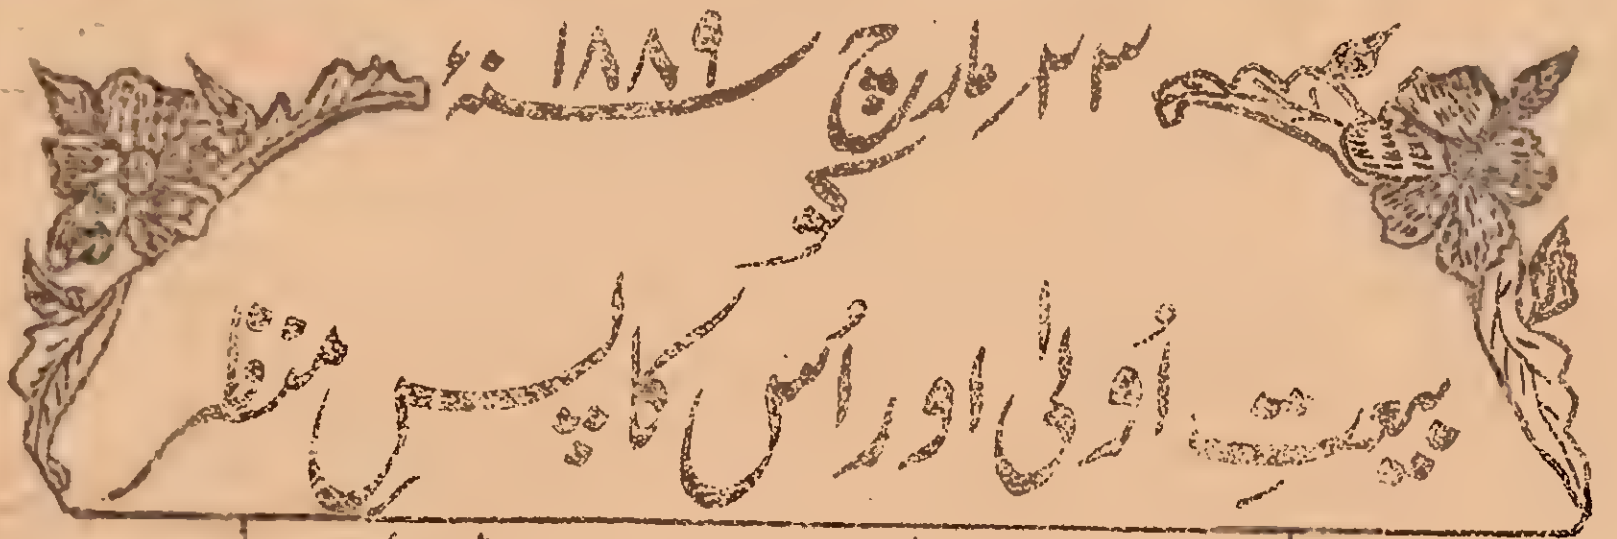 ۲۳ مارچ سنہ ۱۸۸۹ء
کو
بیعتِ اُولیٰ اور اُس کا پس منظر